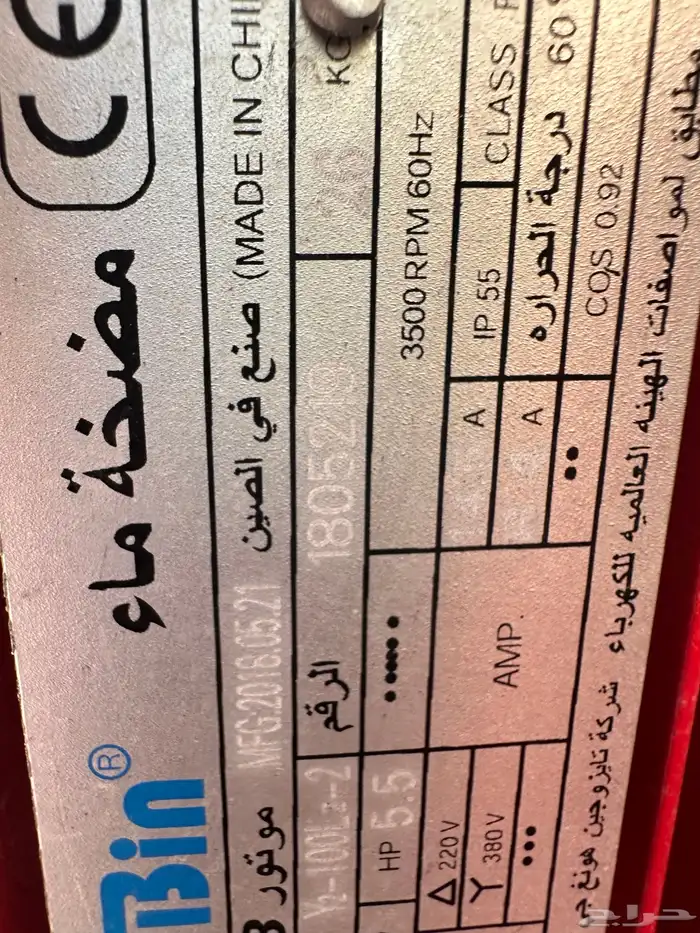 Bin® مضخة ماء CE
موتور MFG.2018.05.21 صنع في الصين (MADE IN CHI
Y2-100L2-2 الرقم KG
HP 5.5 ••••• 3500 RPM 60Hz
Δ 220 V AMP. A IP 55 CLASS F
Y 380 V A درجة الحراره 60
••• •• COS 0.92
شركة تايزوجين هونغ جي مطابق لمواصفات الهيئه العالميه للكهرباء
حراج